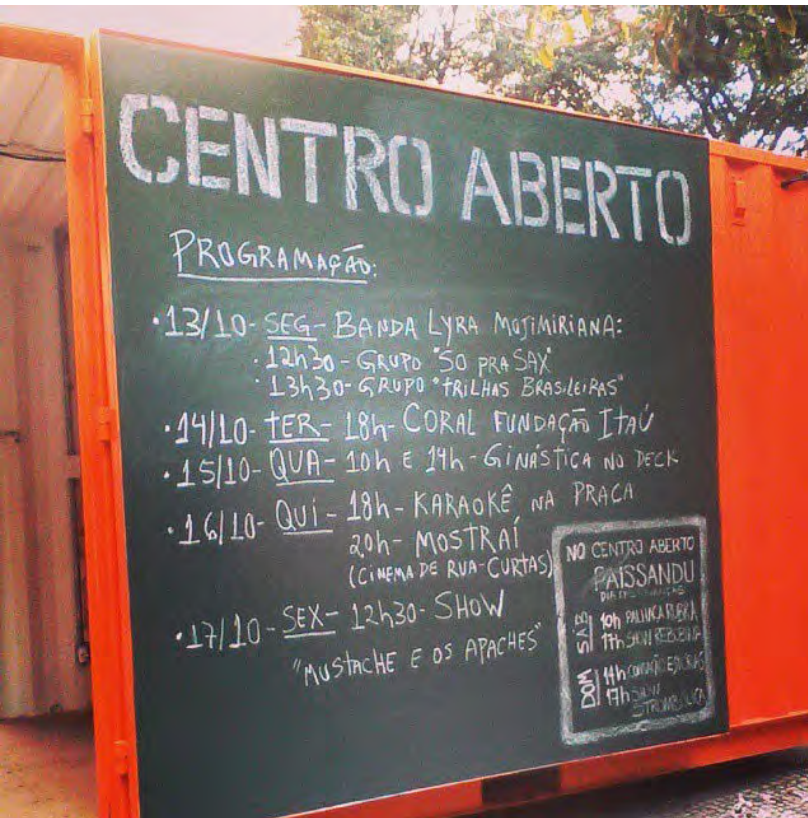 CENTRO ABERTO
PROGRAMAÇÃO:
·13/10- SEG- BANDA LYRA MOJIMIRIANA:
·12h30- GRUPO "SÓ PRA SAX"
·13h30- GRUPO "TRILHAS BRASILEIRAS"
·14/10- TER- 18h- CORAL FUNDAÇÃO ITAÚ
·15/10- QUA- 10h E 14h- GINÁSTICA NO DECK
·16/10- QUI- 18h- KARAOKÊ NA PRAÇA
20h- MOSTRAÍ
(CINEMA DE RUA-CURTAS)
·17/10- SEX- 12h30- SHOW
"MUSTACHE E OS APACHES"
NO CENTRO ABERTO
PAISSANDU
SAB
10h
17h SHOW
DOM
14h
17h SHOW